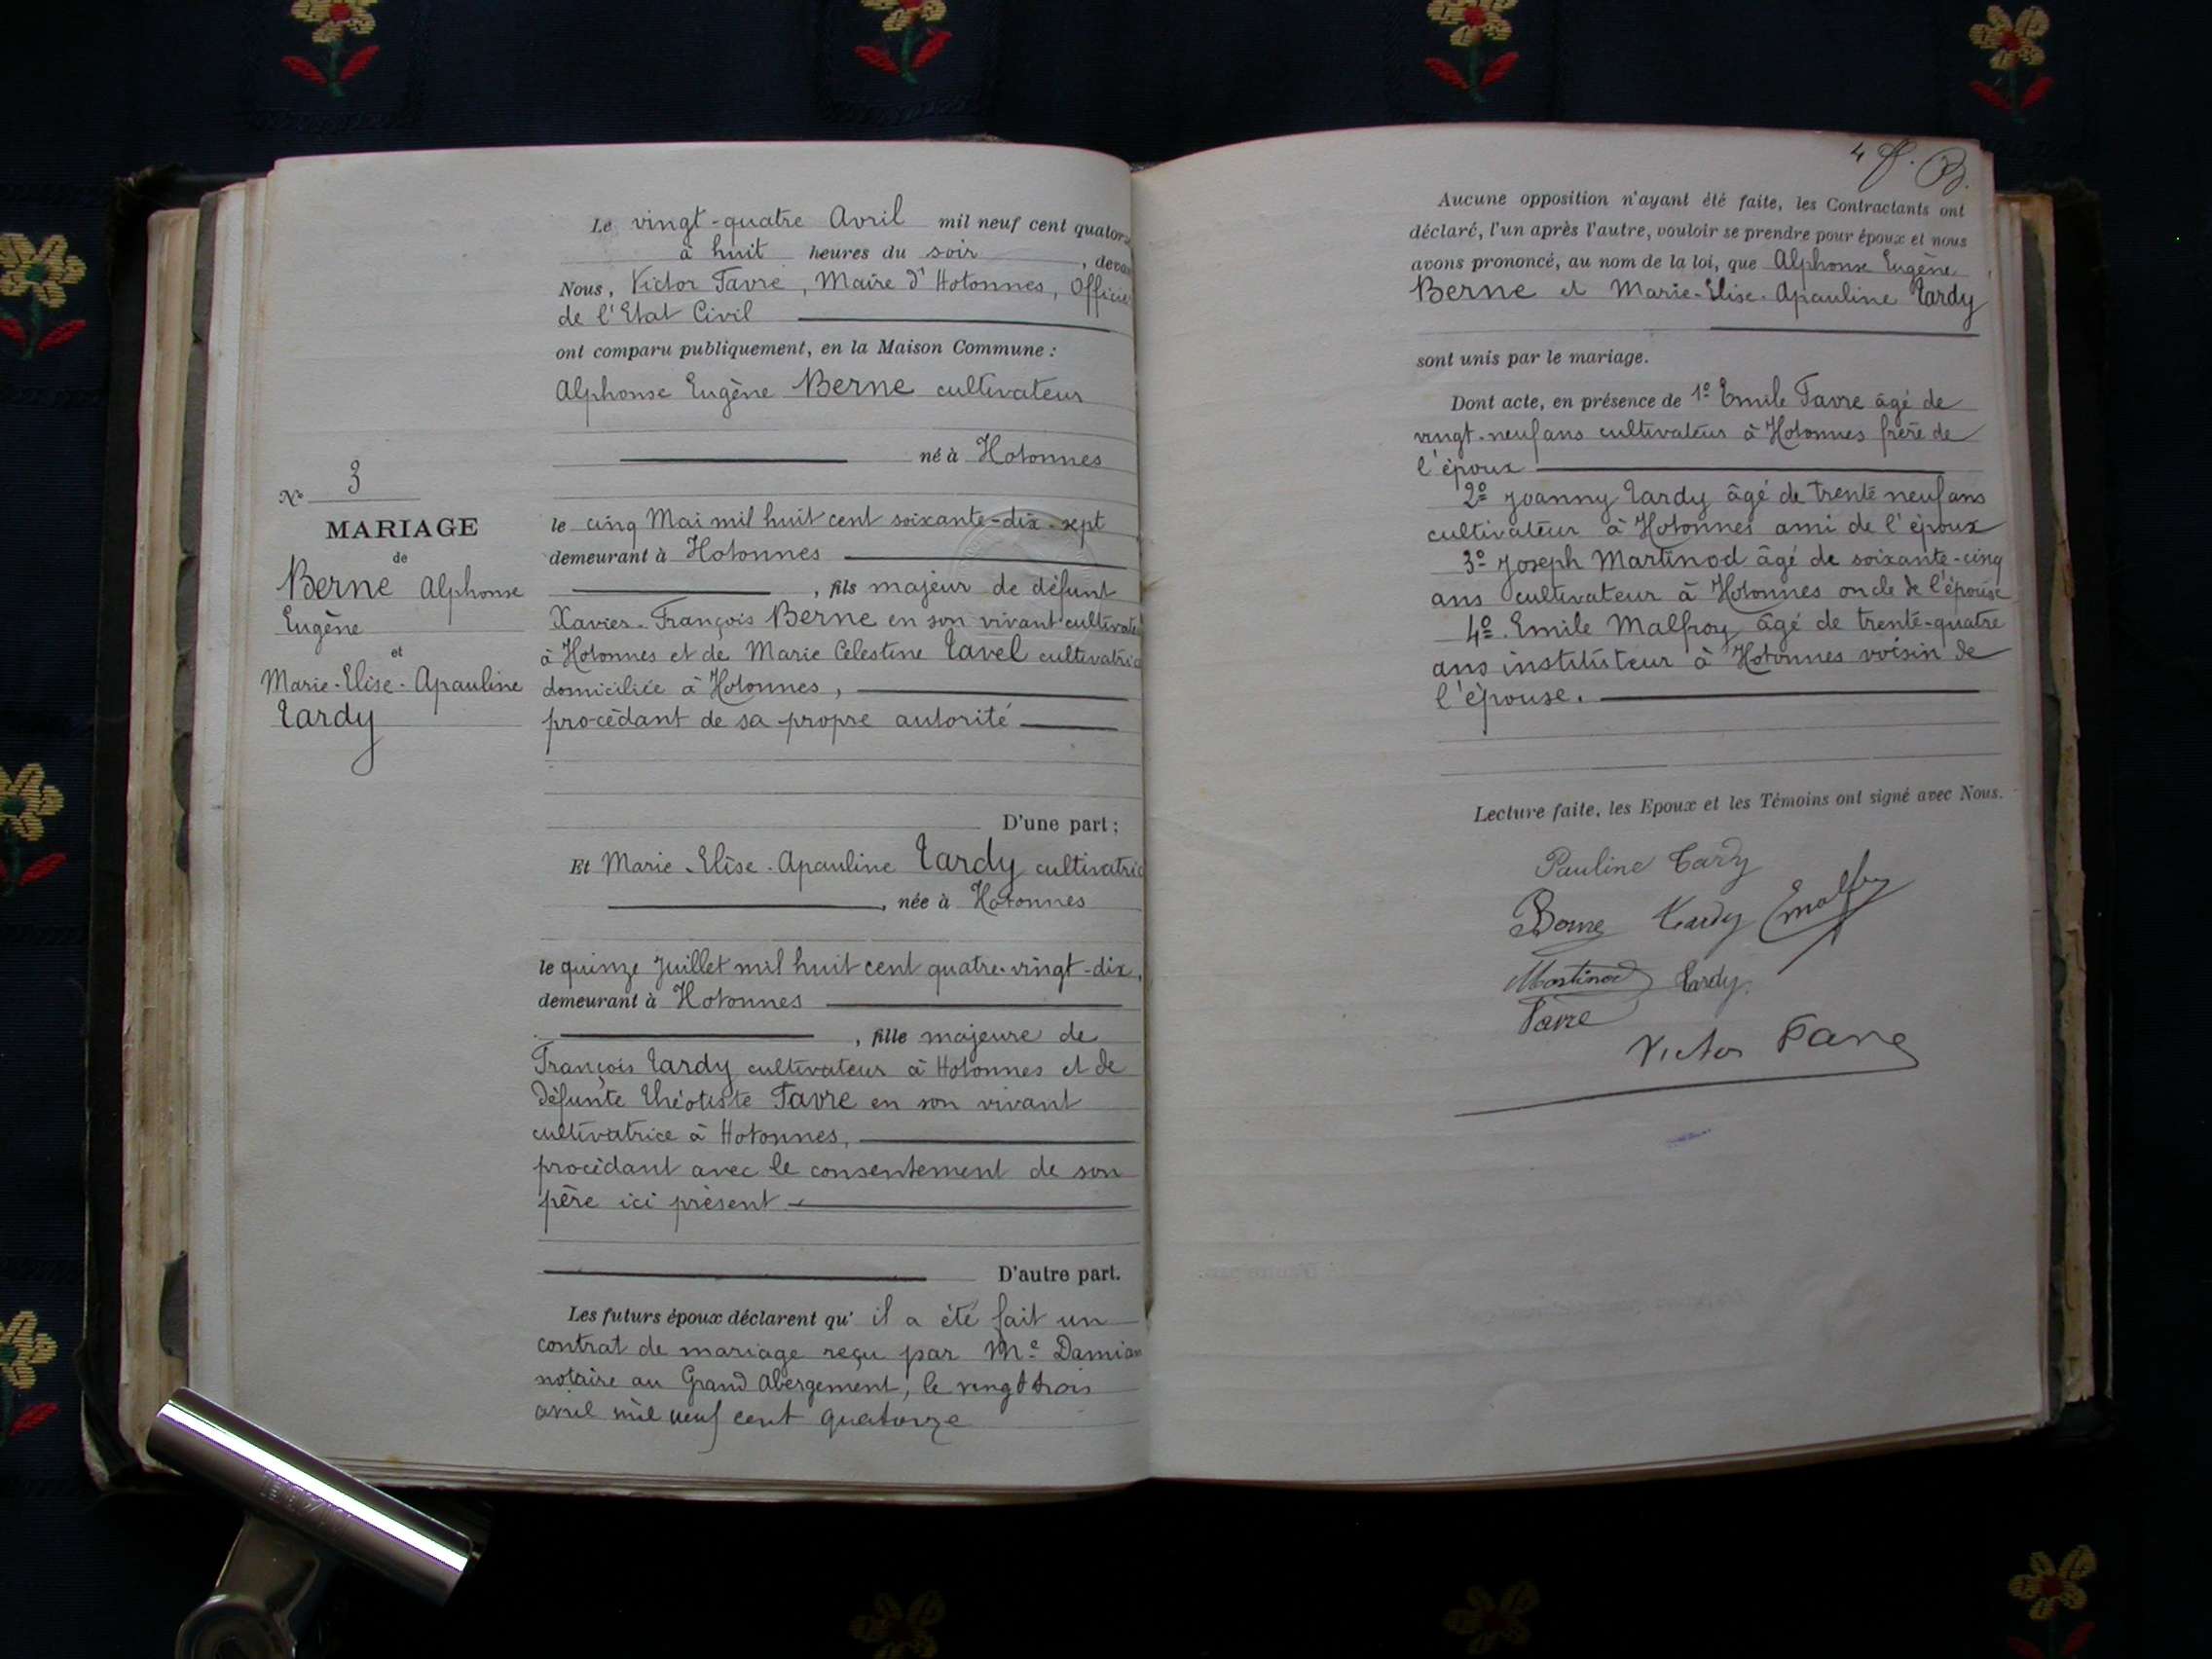 Le vingt-quatre Avril mil neuf cent quatorz
à huit heures du soir, devan
Nous, Victor Favre, Maire d'Hotonnes, Officie
de l'Etat Civil
ont comparu publiquement, en la Maison Commune :
Alphonse Eugène Berne cultivateur
né à Hotonnes
le cinq Mai mil huit cent soixante-dix-sept
demeurant à Hotonnes
, fils majeur de défunt
Xavier-François Berne en son vivant cultivate
à Hotonnes et de Marie Celestine Tavel cultivatric
domiciliée à Hotonnes,
procédant de sa propre autorité
D'une part ;
Et Marie-Elise-Apauline Tardy cultivatric
, née à Hotonnes
le quinze Juillet mil huit cent quatre-vingt-dix,
demeurant à Hotonnes
, fille majeure de
François Tardy cultivateur à Hotonnes et de
défunte Théotiste Favre en son vivant
cultivatrice à Hotonnes,
procédant avec le consentement de son
père ici présent
D'autre part.
Les futurs époux déclarent qu'il a été fait un
contrat de mariage reçu par Me Damian
notaire au Grand Abergement, le vingt trois
avril mil neuf cent quatorze
No 3
MARIAGE
de
Berne Alphonse
Eugène
et
Marie-Elise-Apauline
Tardy
4
Aucune opposition n'ayant été faite, les Contractants ont
déclaré, l'un après l'autre, vouloir se prendre pour époux et nous
avons prononcé, au nom de la loi, que Alphonse Eugène
Berne et Marie-Elise-Apauline Tardy
sont unis par le mariage.
Dont acte, en présence de 1º Emile Favre âgé de
vingt-neuf ans cultivateur à Hotonnes frère de
l'époux
2º Joanny Tardy âgé de trente neuf ans
cultivateur à Hotonnes ami de l'époux
3º Joseph Martinod âgé de soixante-cinq
ans cultivateur à Hotonnes oncle de l'épouse
4º Emile Malfroy âgé de trente-quatre
ans instituteur à Hotonnes voisin de
l'épouse.
Lecture faite, les Epoux et les Témoins ont signé avec Nous.
Pauline Tardy
Berne Tardy EMalfroy
Martinod Tardy
Favre
Victor Favre